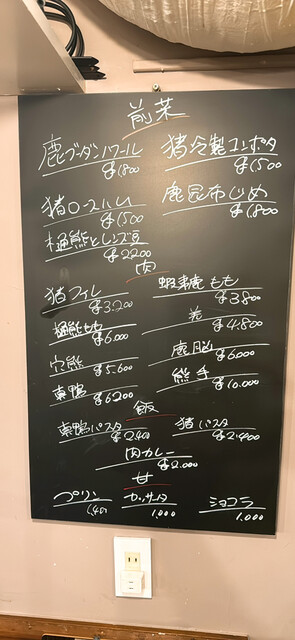 前菜
鹿ブーダンノワール 猪冷製コンポタ
¥1,800 ¥1,500
猪ロースハム 鹿昆布じめ
¥1,500 ¥1,800
樋熊とレンズ豆
¥2200
肉
猪フィレ 蝦夷鹿もも
¥3,200 ¥3,800
樋熊もも
¥6.000 ¥4.800
穴熊 鹿脳
¥5.600 ¥6,000
真鴨 熊手
¥6200 ¥10.000
飯
真鴨パスタ 猪パスタ
¥2,400 ¥2.400
肉カレー
¥2.000
甘
プリン カッサータ ショコラ
1,000 1,000